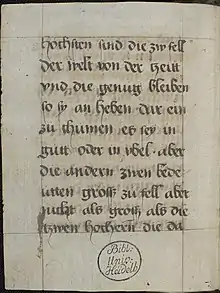 hochsten sind die zw fell
der welt von der heut
vnd die genug bleiben
so sy an heben dar ein
zu khumen es sey in
gutt oder in vbel · aber
die andern zwen bede
uten gross zu fell aber
nicht als gross als die
tzwen hochern die da
Bibl:
Univ:
Heidelb: